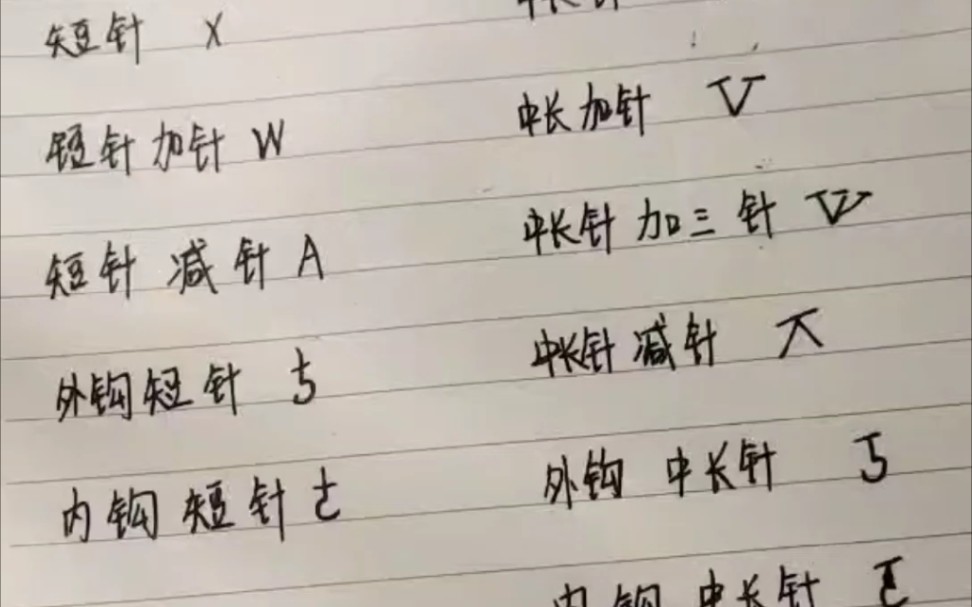 短针 X
短针加针 W
短针减针 A
外钩短针
内钩短针
中长针
中长加针 V
中长针加三针
中长针减针
外钩中长针
内钩中长针